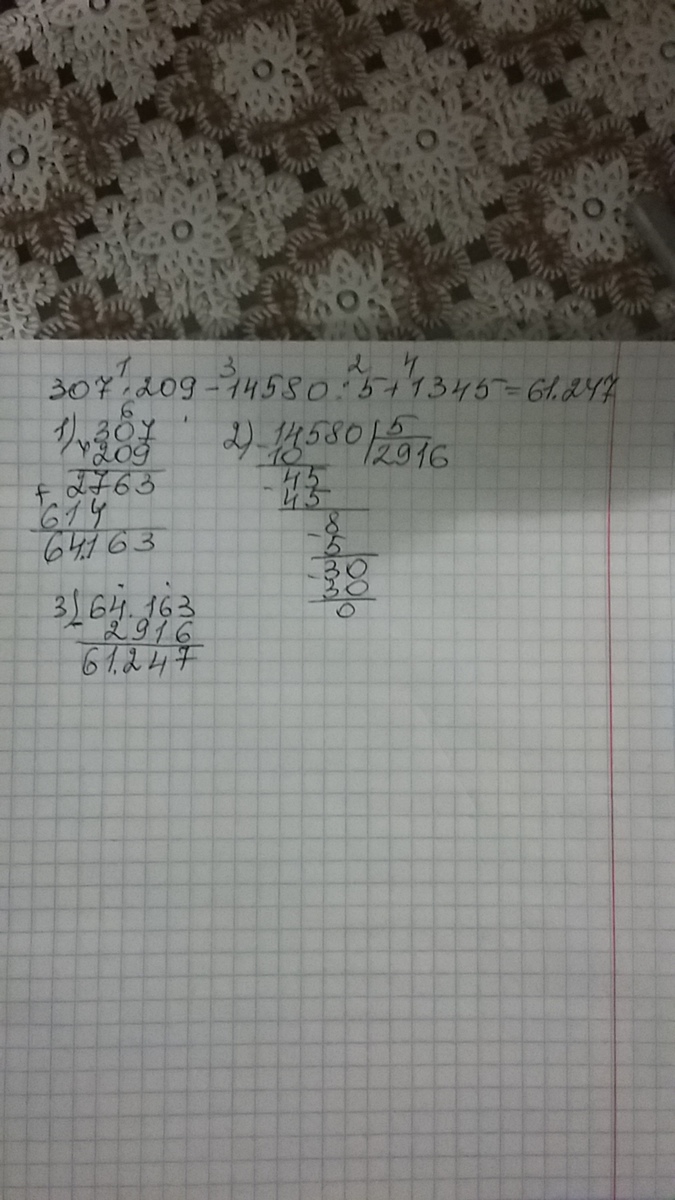 1 3 2 4
307·209-14580:5+1345=61.247
6
1) 307 2) 14580 5
×209 -10 2916
2763 45
+ -45
614 8
64.163 -5
-30
30
3) 64.163 0
- 2916
61.247